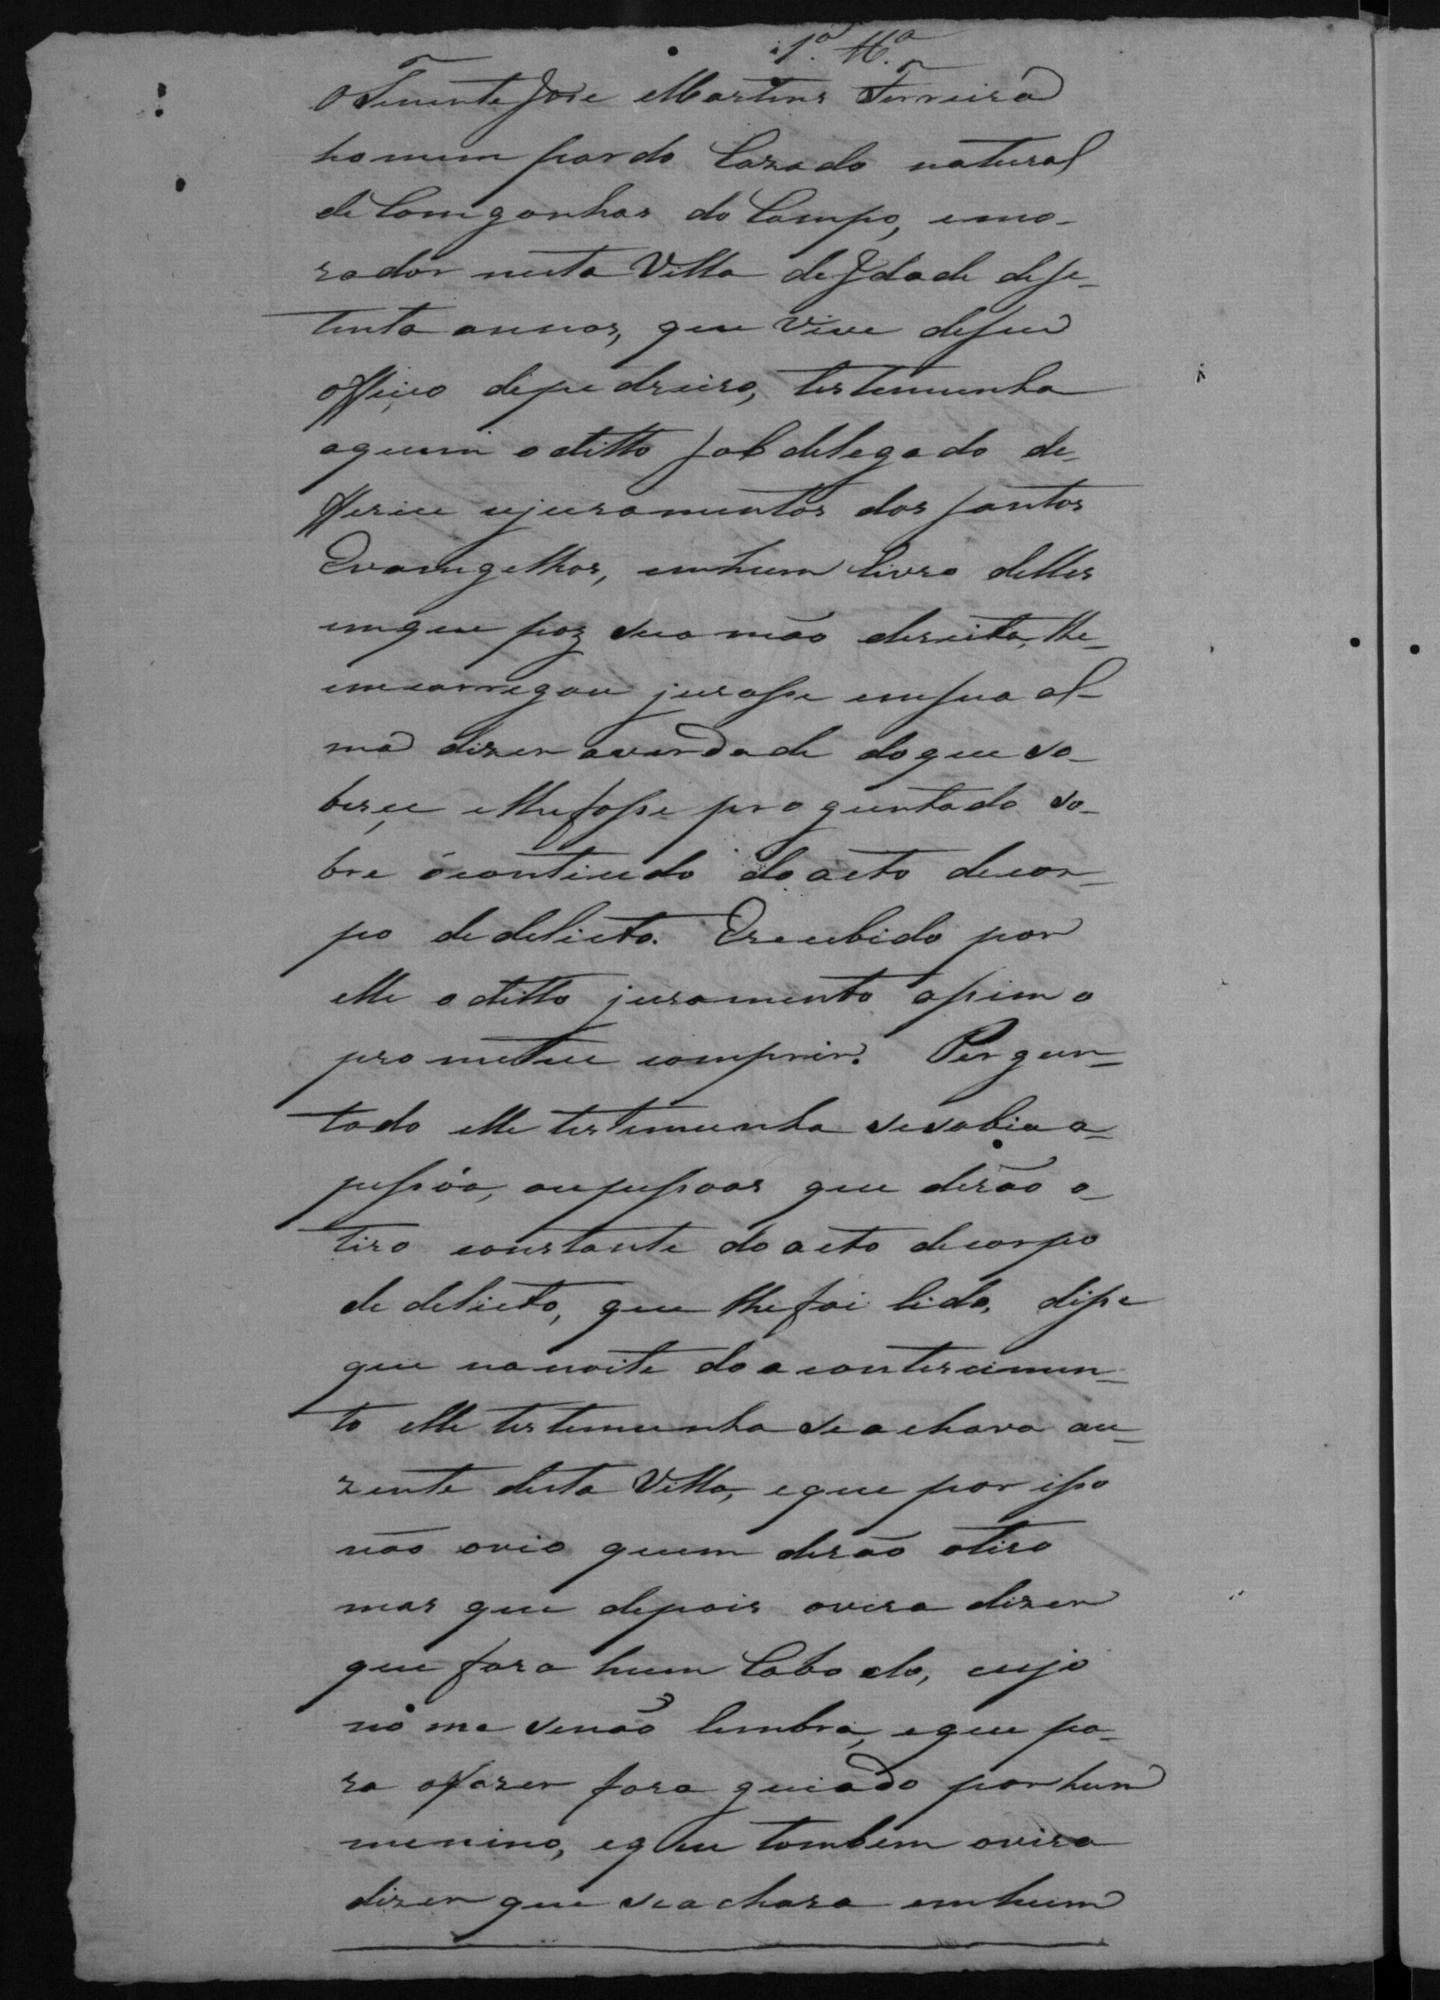 1.ª Tt.ª
O Tenente Jose Martins Ferreira
homem pardo Cazado natural
de Comgonhas do Campo, emo-
rador nesta Villa de Idade dese-
tenta annos, que vive deseu
officio depedreiro, testemunha
aquem oditto Sobdelegado de-
fferiu ojuramentos dos Santos
Evamgelhos, emhum livro delles
emque poz sua mão direita, lhe
emcarregou jurasse emsua al-
ma dizer averdade doque so-
besse elhefosse proguntado so-
bre ócontiudo do acto decor-
po dedelicto. Erecebido por
elle oditto juramento assim o
prometeu comprir. Pergun-
tado elle testemunha sesabia a-
pessôa, oupessoas que derão o-
tiro constante do acto decorpo
de delicto, que lhefoi lido, disse
que nanoite do acontescimen-
to elle testemunha seachava au-
zente desta Villa, eque por isso
não ovio quem derão otiro
mas que depois ovira dizer
que fora hum Cabodo, cujo
nome senão lembra, eque pa-
ra ofazer fora guiado porhum
menino, eque tambem ovira
dizer que seachara emhum